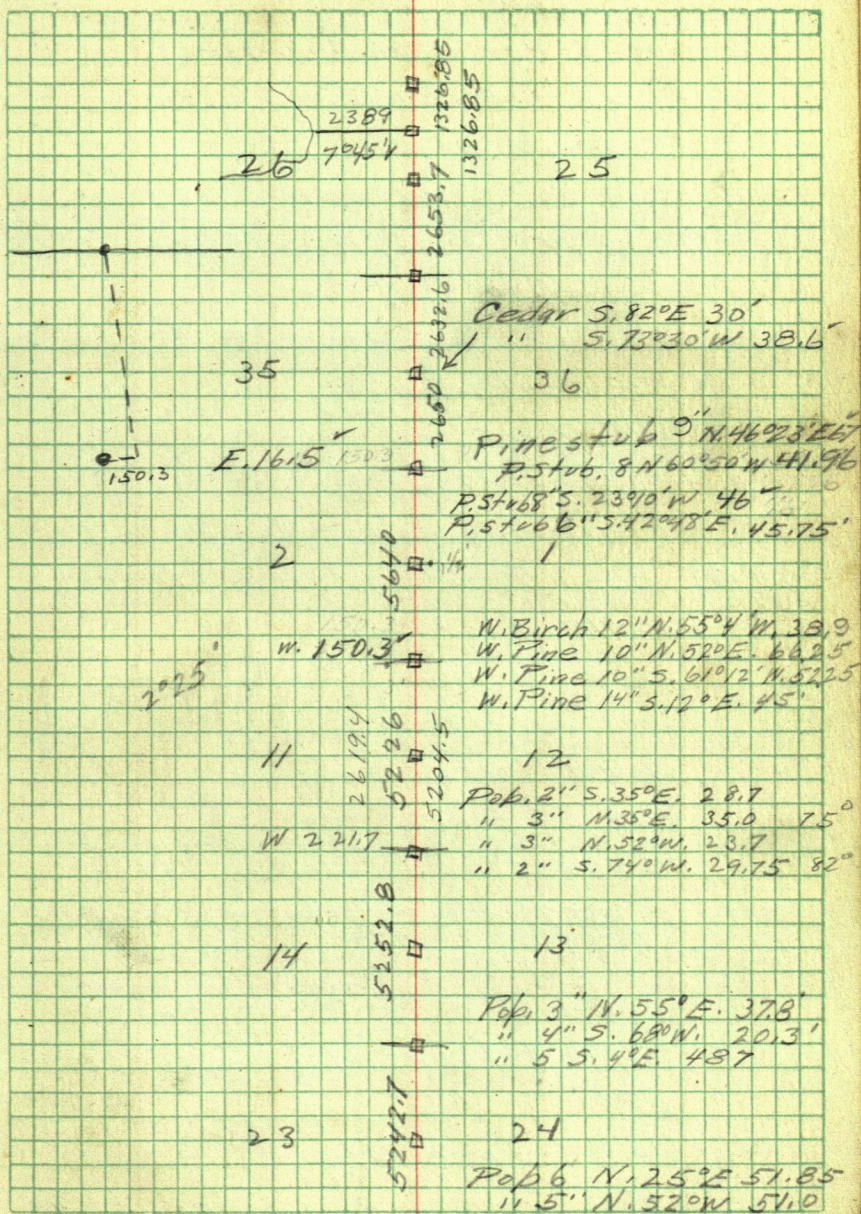 1326.85
1326.85
2389
7°45'
26
25
2653.7
2632.6
Cedar S. 82°E 30'
" S. 73°30' W 38.6'
35
36
2650
Pine stub 9" N. 46°23' E 67'
150.3
E. 16.5' 150.3
P. Stub. 8 N 60°50' W 41.96
P. Stub 8" S. 23°10' W 46'
P. stub 6" S. 42°48' E. 45.75'
2
5640
1
W. Birch 12" N. 55°4' W. 38.9
W. 150.3'
W. Pine 10" N. 52° E. 66.25
2°25'
W. Pine 10" S. 61°12' W. 52.25
W. Pine 14" S. 12° E. 45'
2619.4
5226
5204.5
11
12
Pop. 2" S. 35° E. 28.7
" 3" N. 35° E. 35.0 75°
W 221.7
" 3" N. 52° W. 23.7
" 2" S. 74° W. 29.75 82°
5252.8
14
13
Pop. 3" N. 55° E. 37.8'
" 4" S. 68° W. 20.3'
" 5 S. 4° E. 48.7
5242.7
23
24
Pop 6 N. 25° E 51.85
" 5" N. 52° W 51.0